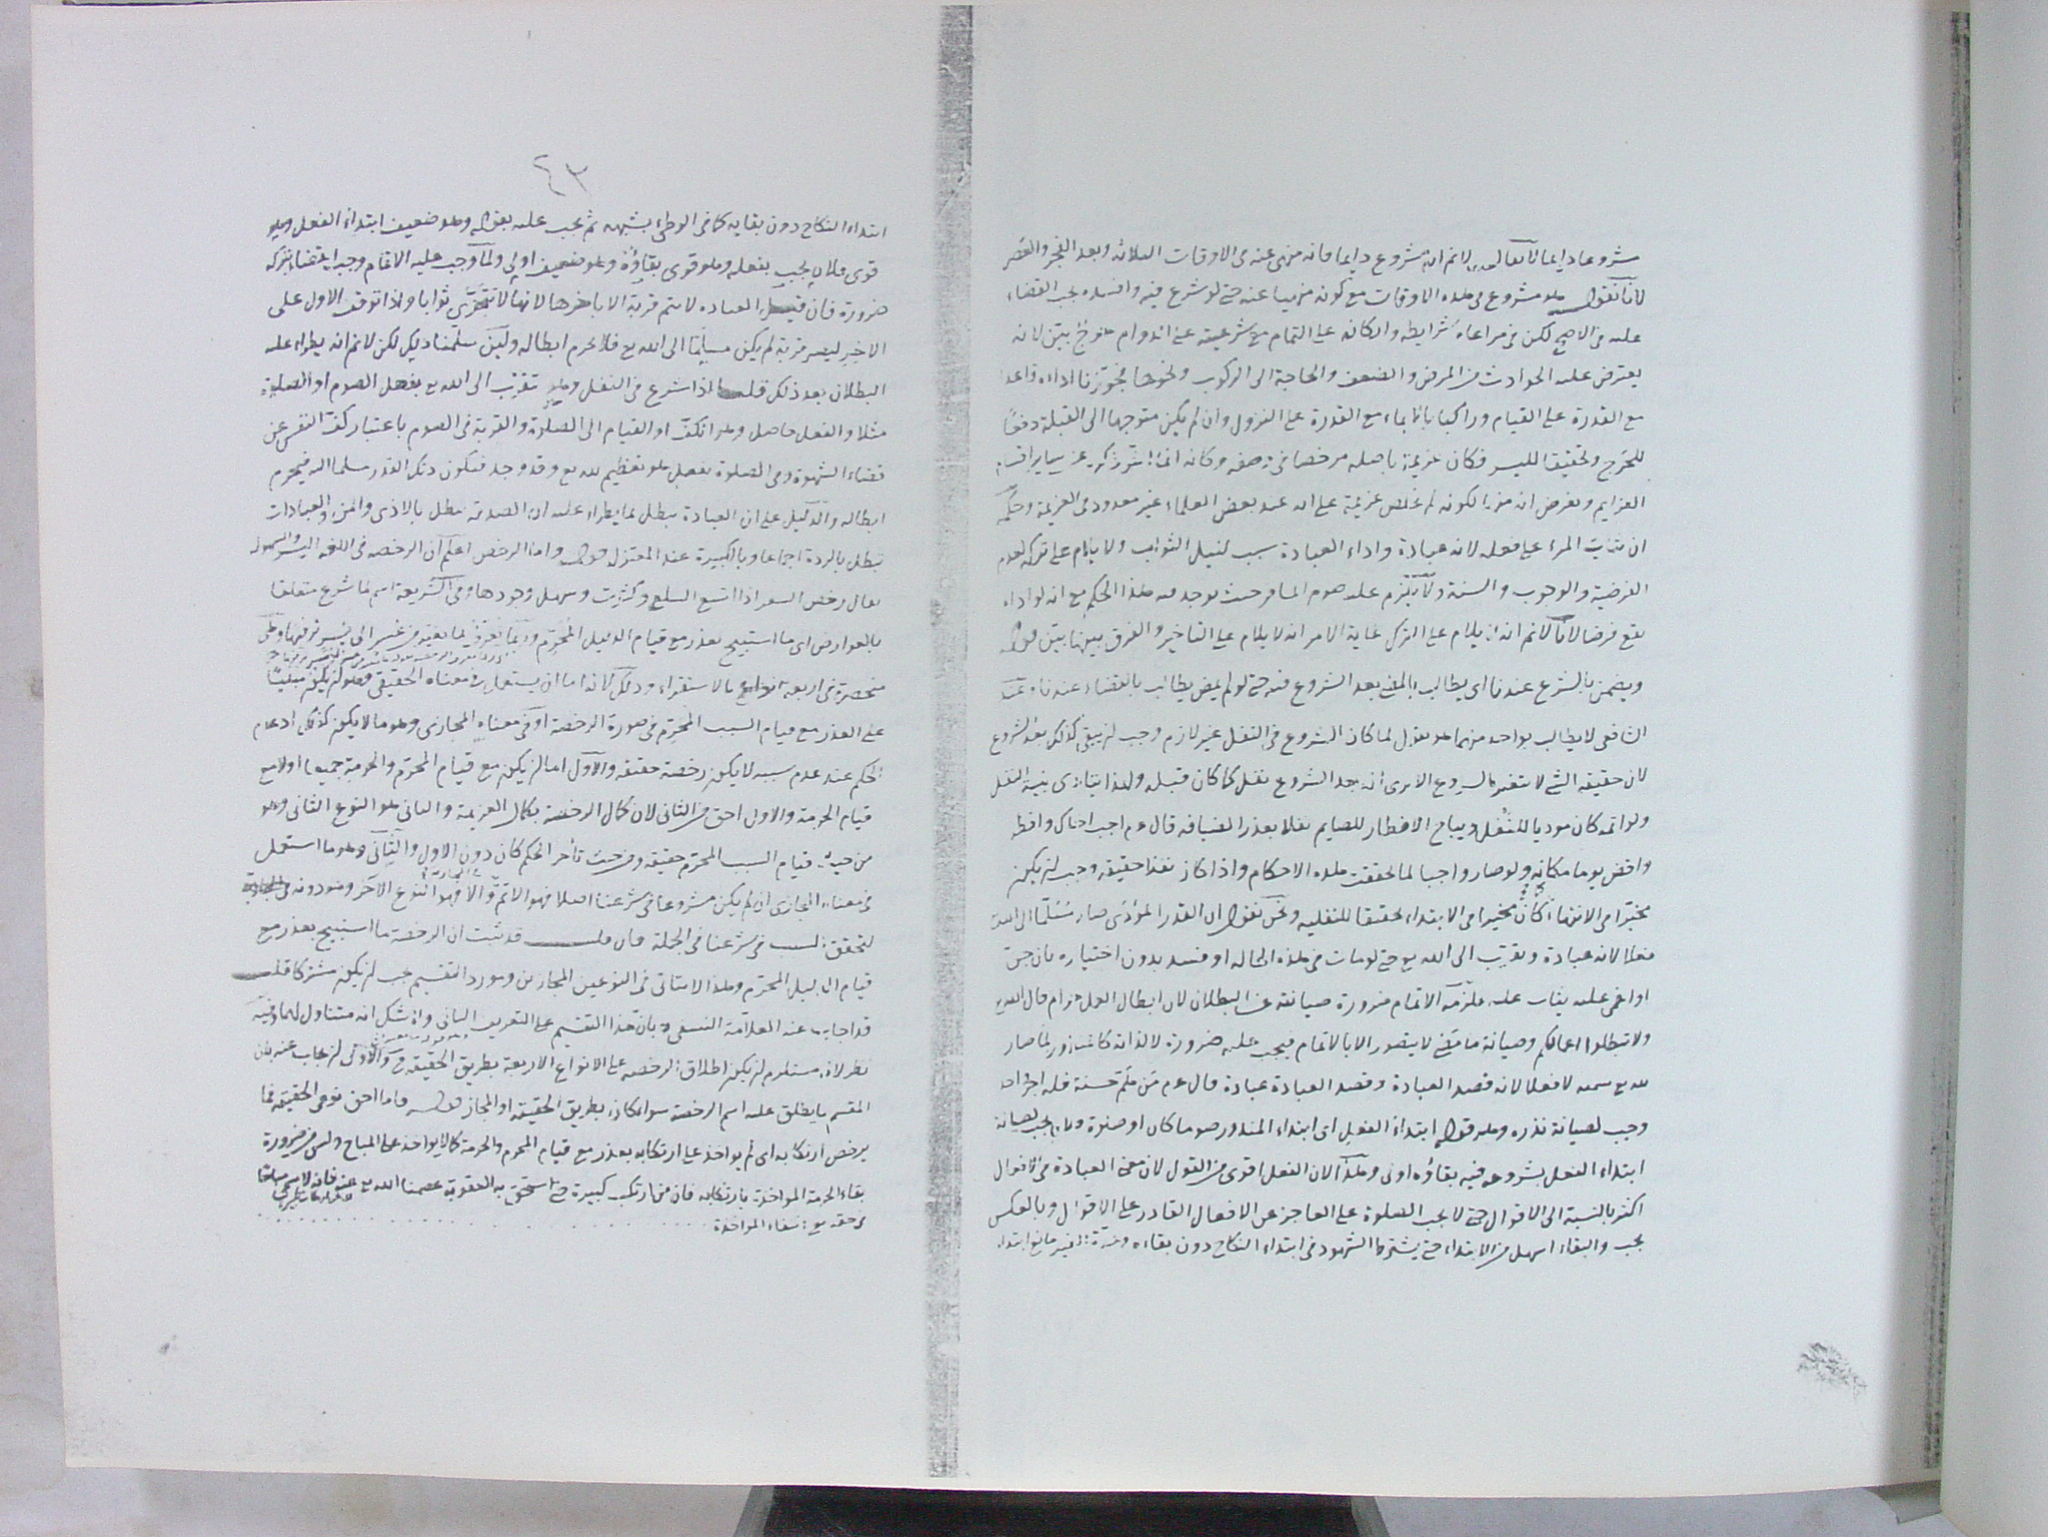 مشروعا دايما لا يقال لانم انه مشروع دايما فانه منهى عنه فى الاوقات الثلاثة وبعد الفجر والعصر
لانا نقول هو مشروع فى هذه الاوقات مع كونه منهيا عنه حتى لو شرع فيه وافسده يجب القضاء
عليه فى الاصح لكن فى مراعاة شرايطه واركانه على التمام مع شرعيته على الدوام حرج بين لانه
يعترض عليه الحوادث من المرض والضعف والحاجة الى الركوب ونحوها فجوزنا اداءه قاعدا
مع القدرة على القيام وراكبا بالايماء مع القدرة على النزول وان لم يكن متوجها الى القبلة دفعا
للحرج وتحقيقا لليسر فكان عزيمة باصله مرخصا فى وصفه
العزايم وتعرض ان لكونه لم تخلص عزيمة على انه عند بعض العلماء غير معدود فى العزيمة وحكمه
ان يثاب المرء على فعله لانه عبادة واداء العبادة سبب لنيل الثواب ولا يلام على تركه لعدم
الفرضية والوجوب والسنة ولا يلزم عليه صوم المسافر حيث يوجد فيه هذا الحكم مع انه لو اداه
يقع فرضا لانا لانم انه لا يلام على الترك غاية الامر انه لا يلام على التاخير والفرق بينهما بين قوله
ويضمن بالشرع عندنا اى يطالب بالمضى بعد الشروع فيه حتى لو لم يمض يطالب بالقضاء عندنا وعند
الشافعى لا يطالب بواحد منهما هو يقول لما كان الشروع فى النفل غير لازم وجب ان يبقى كذلك بعد الشروع
لان حقيقة الشئ لا تتغير بالشروع الا يرى انه بعد الشروع نفل كما كان قبله ولهذا يتادى بنية النفل
ولو اتمه كان موديا للنفل ويباح الافطار للصايم نفلا بعذر الضيافة قال عم اجب اخاك وافطر
واقض يوما مكانه ولو صار واجبا لما تحققت هذه الاحكام واذا كان نفلا حقيقة وجب ان يكون
مخيرا فى الانتهاء كما كان مخيرا فى الابتداء تحقيقا للنفلية ونحن نقول ان القدر المؤدى صار مسلما الى الله
فعلا لانه عبادة وتقرب الى الله تع حتى لو مات فى هذه الحالة او فسد بدون اختياره بان جن
او اغمى عليه يثاب عليه فلزمه الاتمام ضرورة صيانته عن البطلان لان ابطال العمل حرام قال الله تع
ولا تبطلوا اعمالكم وصيانة ما مضى لا يتصور الا بالاتمام فيجب عليه ضرورة لا لذاته كالنذور لما صار
لله تع تسمية لا فعلا لانه قصد العبادة وقصد العبادة عبادة قال عم من هم بحسنة فله اجر واحد
وجب لصيانة نذره وهو قوله ابتداء الفعل اى ابتداء المنذور صوما كان او صلوة فلان يجب لصيانة
ابتداء الفعل بشروعه فيه بقاؤه اولى وهذا لان الفعل اقوى من القول لان معنى العبادة فى الافعال
اكثر بالنسبة الى الاقوال حتى لا يجب الصلوة على العاجز عن الافعال القادر على الاقوال وبالعكس
يجب والبقاء اسهل من الابتداء حتى يشترط الشهود فى ابتداء النكاح دون بقاءه
٤٣
ابتداء النكاح دون بقايه كما فى الوطى بشبهة ثم يجب عليه بقوله وهو ضعيف ابتداء الفعل وهو
قوى فلان يجب بفعله وهو قوى بقاؤه وهو ضعيف اولى ولما وجب عليه الاتمام وجب القضاء بتركه
ضرورة فان قيل العبادة لا يتم قربة الا باخرها لانها لا تتجزى ثوابا واذا توقف الاول على
الاخير ليصير قربة لم يكن مسلما الى الله تع فلا يحرم ابطاله ولين سلمنا ذلك لكن لانم انه يطراء عليه
البطلان بعد ذلك قلنا اذا شرع فى النفل وهو تقرب الى الله تع بفعل الصوم او الصلوة
مثلا والفعل حاصل وهو الكف او القيام الى الصلوة والقربة فى الصوم باعتبار كف النفس عن
قضاء الشهوة وفى الصلوة بفعل هو تعظيم لله تع وقد وجد فيكون ذلك القدر مسلما اليه فيحرم
ابطاله والدليل على ان العبادة تبطل بما يطراء عليه ان الصدقة تبطل بالاذى والمن والعبادات
تبطل بالردة اجماعا وبالكبيرة عند المعتزلة قوله واما الرخص اعلم ان الرخصة فى اللغة اليسر والسهولة
يقال رخص السعر اذا اتسع السلع وكثرت وسهل وجودها وفى الشريعة اسم لما شرع متعلقا
بالعوارض اى ما استبيح بعذر مع قيام الدليل المحرم وربما تعرف بما تغير من عسر الى يسر وهى
منحصرة فى اربعة انواع بالاستقراء وذلك لانه اما ان يستعمل فى معناه الحقيقى وهو ان يكون مبنيا
على العذر مع قيام السبب المحرم فى صورة الرخصة او فى معناه المجازى وهو ما لا يكون كذلك اذ عدم
الحكم عند عدم سببه لا يكون رخصة حقيقة والاول اما ان يكون مع قيام المحرم والحرمة جميعا اولا مع
قيام الحرمة والاول احق من الثانى لان كمال الرخصة بكمال العزيمة والثانى هو النوع الثانى وهو
من حيث قيام السبب المحرم حقيقة ومن حيث تأخر الحكم كان دون الاول والثانى وهو ما استعمل
فى معناه المجازى ان لم يكن مشروعا فى شرعنا اصلا فهو الاتم والا فهو النوع الاخر وهو دونه فى المجازية
لتحقق السبب فى شرعنا فى الجملة فان قلت قد ثبت ان الرخصة ما استبيح بعذر مع
قيام الدليل المحرم وهذا لا يتاتى فى النوعين المجازين ومورد التقسيم يجب ان يكون مشتركا قلت
قد اجاب عنه العلامة النسفى بان هذا التقسيم على التعريف الثانى ولا شك انه متناول لهما وفيه
نظر لانه مستلزم ان يكون اطلاق الرخصة على الانواع الاربعة بطريق الحقيقة والاولى ان يجاب عنه بان
المقسم ما يطلق عليه اسم الرخصة سواء كان بطريق الحقيقة او المجاز قوله فاما احق نوعى الحقيقة فما
يرخص ارتكابه اى لم يواخذ على ارتكابه بعذر مع قيام المحرم والحرمة كما لا يواخذ على المباح وليس من ضرورة
بقاء الحرمة المواخذة بارتكابه فان من ارتكب كبيرة حتى استحق به العقوبة عصمنا الله تع عنه فانه لا يسمى مباحا
فى حقه تع بنفاء المواخذة